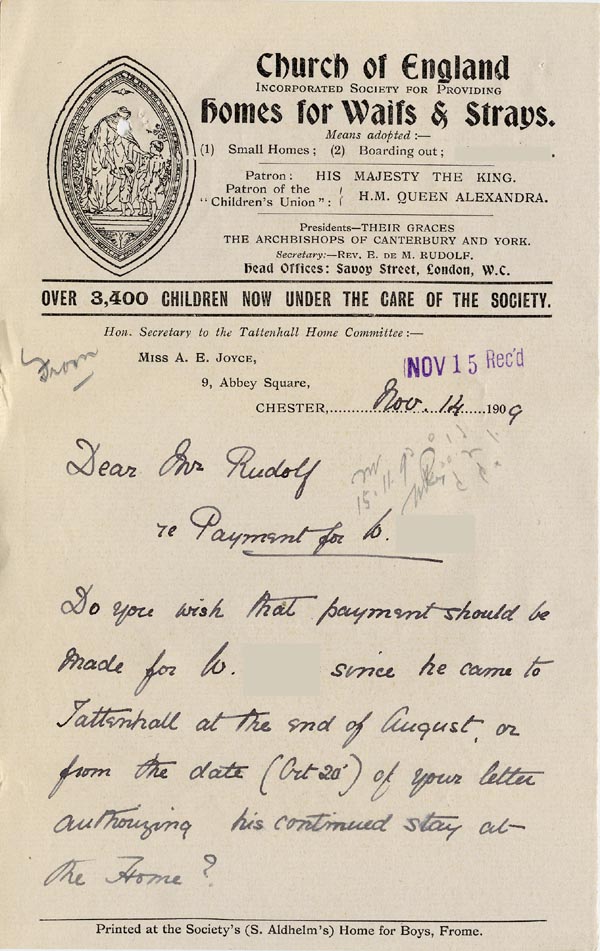 Church of England
Incorporated Society for Providing
Homes for Waifs & Strays.
Means adopted :—
(1) Small Homes; (2) Boarding out;
Patron: HIS MAJESTY THE KING.
Patron of the
"Children's Union": H.M. QUEEN ALEXANDRA.
Presidents—THEIR GRACES
THE ARCHBISHOPS OF CANTERBURY AND YORK.
Secretary:—REV. E. DE M. RUDOLF.
Head Offices: Savoy Street, London, W.C.
OVER 3,400 CHILDREN NOW UNDER THE CARE OF THE SOCIETY.
Hon. Secretary to the Tattenhall Home Committee:—
MISS A. E. JOYCE,
NOV 15 Rec'd
9, Abbey Square,
CHESTER, Nov. 14 1909
Dear Mr Rudolf
15.11.9
re Payment for W.
Do you wish that payment should be
made for W. since he came to
Tattenhall at the end of August, or
from the date (Oct 20) of your letter
authorizing his continued stay at
the Home?
Printed at the Society's (S. Aldhelm's) Home for Boys, Frome.